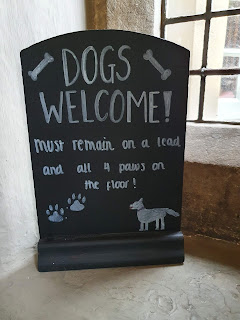 DOGS
WELCOME!
Must remain on a lead
and all 4 paws on
the floor!